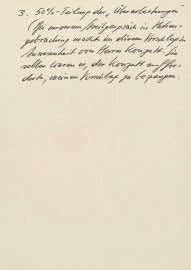 3. 50%-Teilung der „Überleistungen"
(Bei unserem Streitgespräch in
machte ich diesen Vorschlag in
Anwesenheit von Herrn Konzett. Sie
selber waren es, der Konzett auffor-
derte, meinen Vorschlag zu